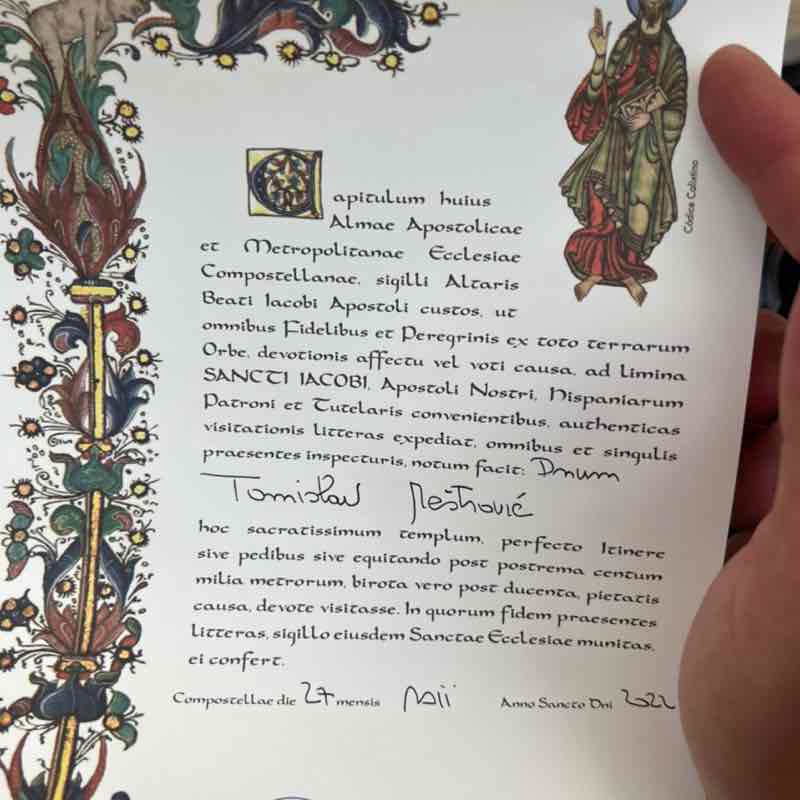 Códice Calixtino
Capitulum huius
Almae Apostolicae
et Metropolitanae Ecclesiae
Compostellanae, sigilli Altaris
Beati Iacobi Apostoli custos, ut
omnibus Fidelibus et Peregrinis ex toto terrarum
Orbe, devotionis affectu vel voti causa, ad limina
SANCTI IACOBI, Apostoli Nostri, Hispaniarum
Patroni et Tutelaris convenientibus, authenticas
visitationis litteras expediat, omnibus et singulis
praesentes inspecturis, notum facit: Dnum
Tomislav Meštrović
hoc sacratissimum templum, perfecto Itinere
sive pedibus sive equitando post postrema centum
milia metrorum, birota vero post ducenta, pietatis
causa, devote visitasse. In quorum fidem praesentes
litteras, sigillo eiusdem Sanctae Ecclesiae munitas,
ei confert.
Compostellae die 27 mensis Maii Anno Sancto Dni 2022